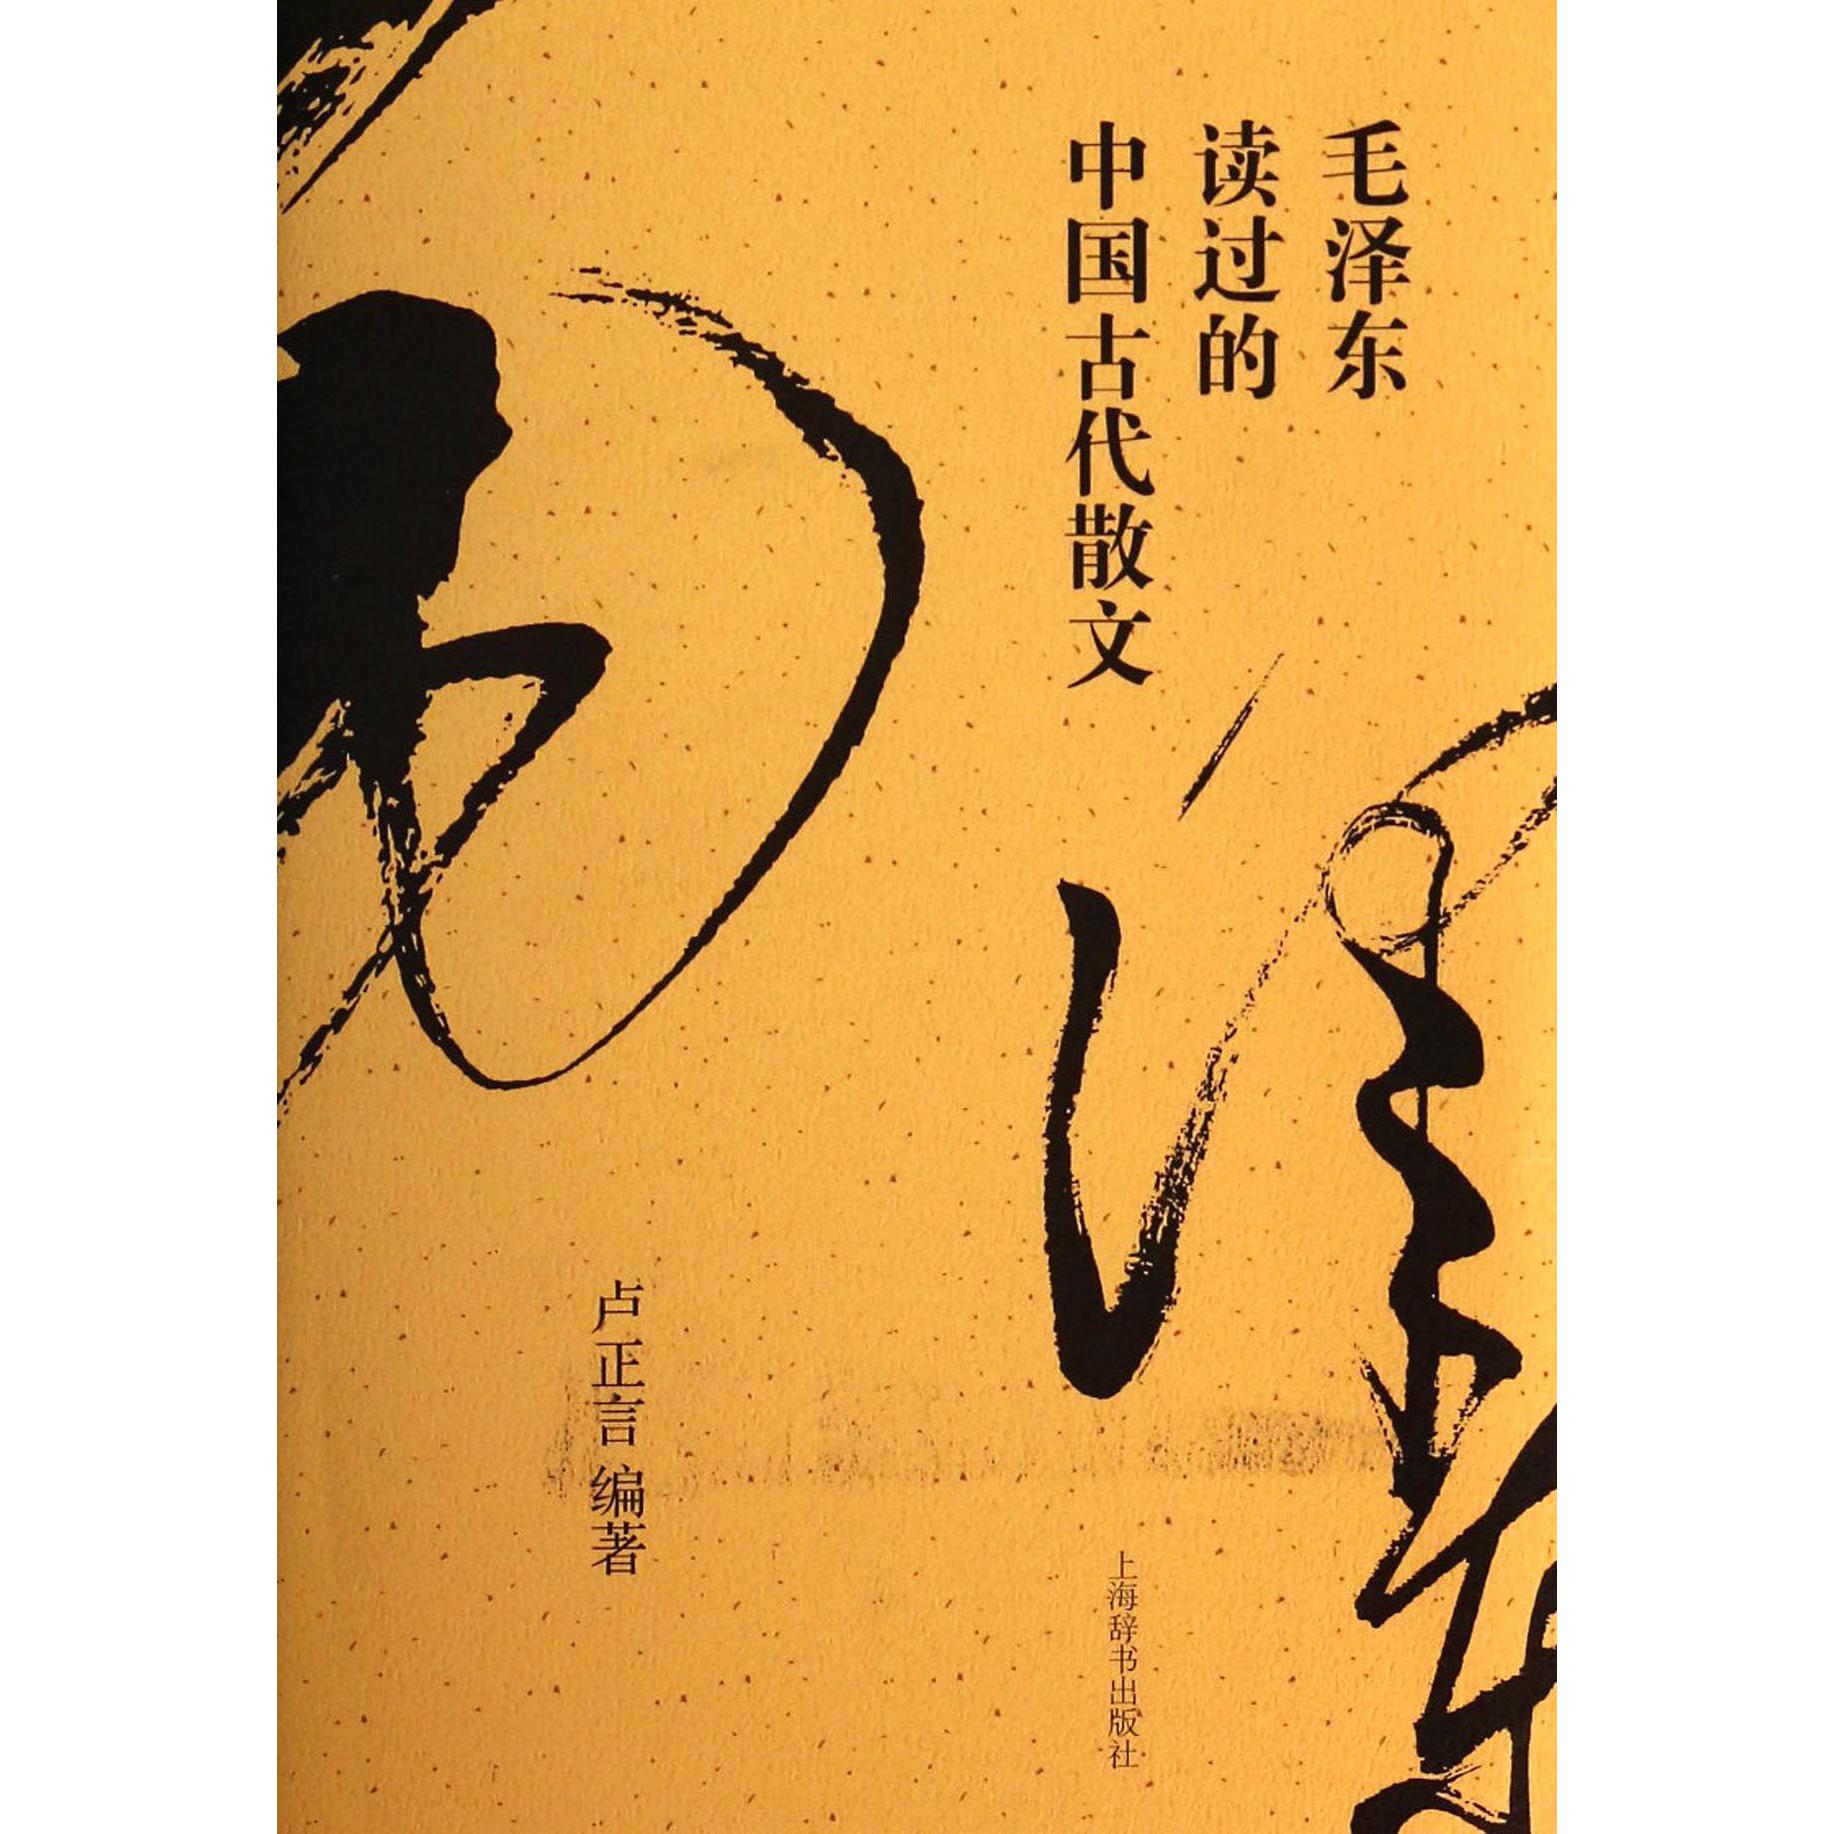 毛泽东
读过的
中国古代散文
卢正言 编著
上海辞书出版社